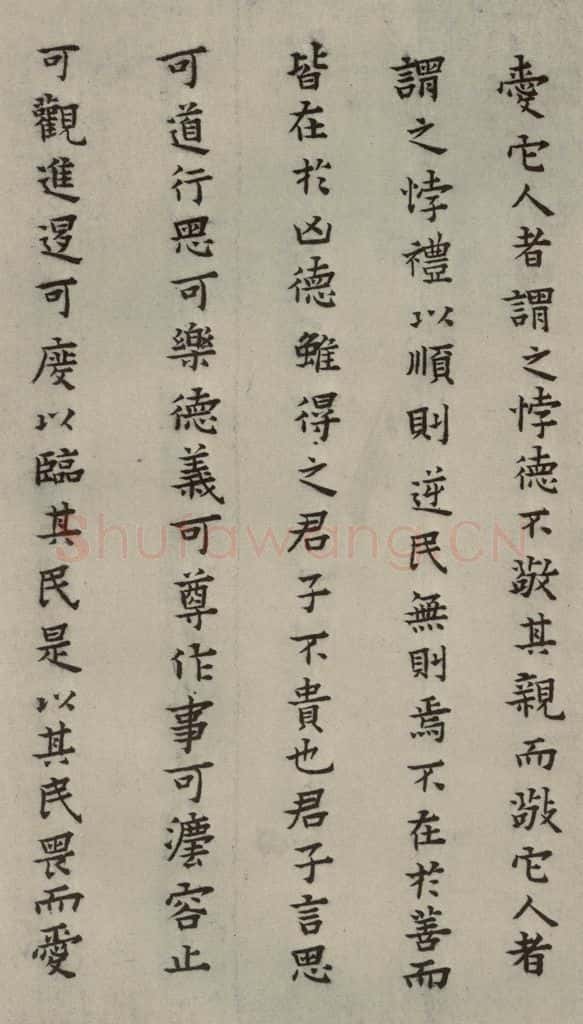 愛它人者謂之悖德不敬其親而敬它人者
謂之悖禮以順則逆民無則焉不在於善而
皆在於凶德雖得之君子不貴也君子言思
可道行思可樂德義可尊作事可灋容止
可觀進退可度以臨其民是以其民畏而愛
Shufawang.CN